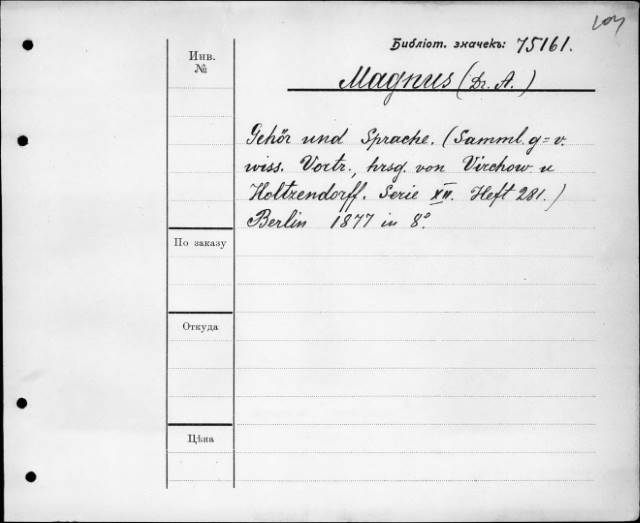 Библіот. значекъ: 75161.
Инв.
№
Magnus (Dr. A.)
Gehör und Sprache. (Samml. g=v.
wiss. Vortr., hrsg. von Virchow u
Holtzendorff. Serie XII. Heft 281.)
Berlin 1877 in 8º.
По заказу
Откуда
Цѣна